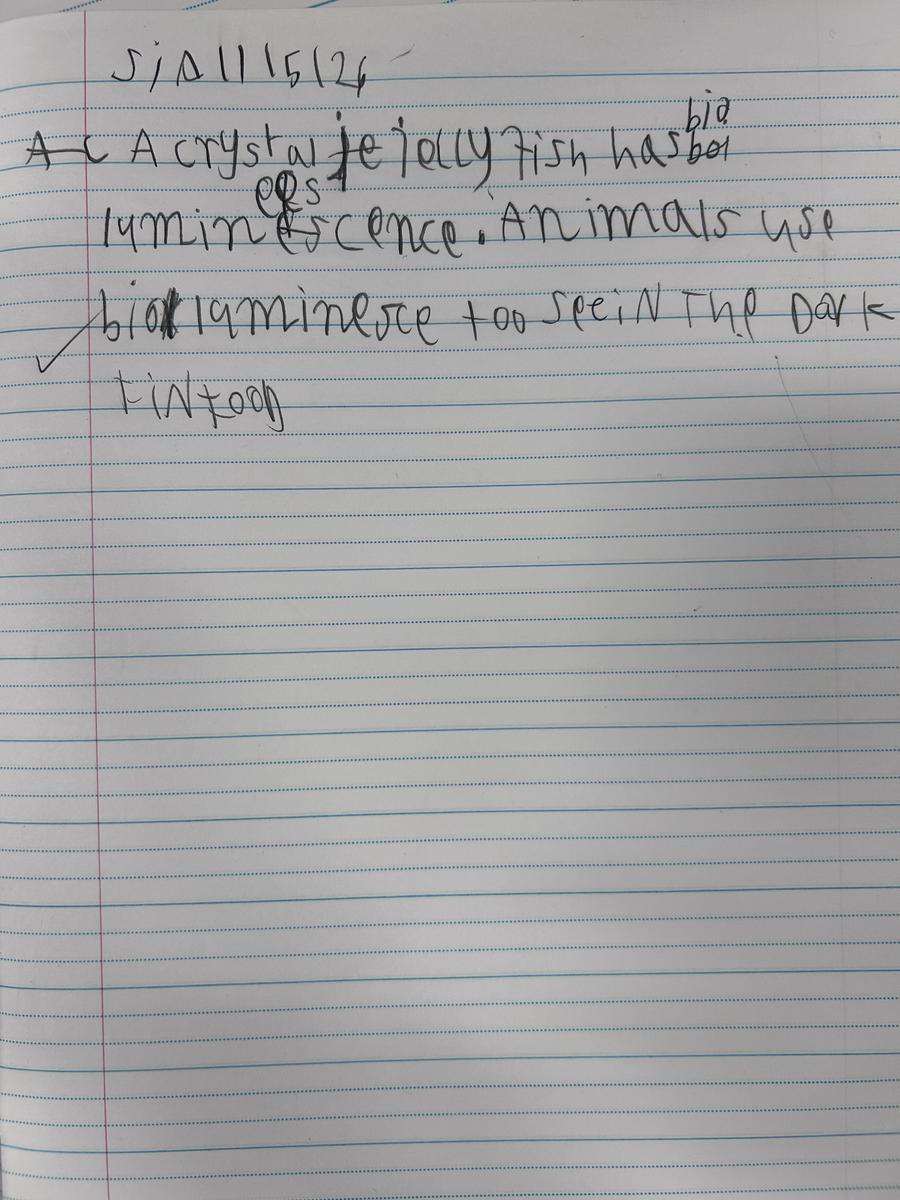 SiA 11/5/24
A C A crystal je jelly fish has bio boi
luminescence. Animals use
bioluminesce too see iN The Dark
FiN Food